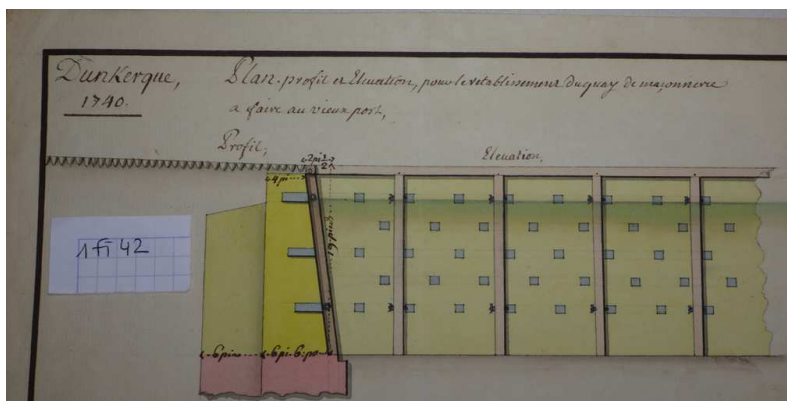 Dunkerque,
1740.
Plan, profil et Elevation, pour le retablissement du quay de maçonnerie
a faire au vieux port,
Profil,
2 pi 1/2
Elevation,
4 pi
19 pieds
1 Fi 42
6 pieds
6 pi 6 po